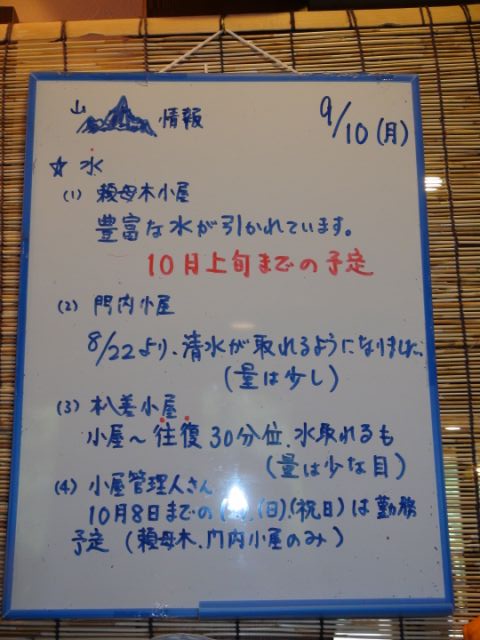 山 情報
9/10(月)
☆ 水
(1) 頼母木小屋
豊富な水が引かれています。
10月上旬までの予定
(2) 門内小屋
8/22より、清水が取れるようになりました
(量は少し)
(3) 杁差小屋
小屋~往復30分位、水取れるも
(量は少な目)
(4) 小屋管理人さん
10月8日までの (日)、(祝日)は勤務
予定 (頼母木、門内小屋のみ)